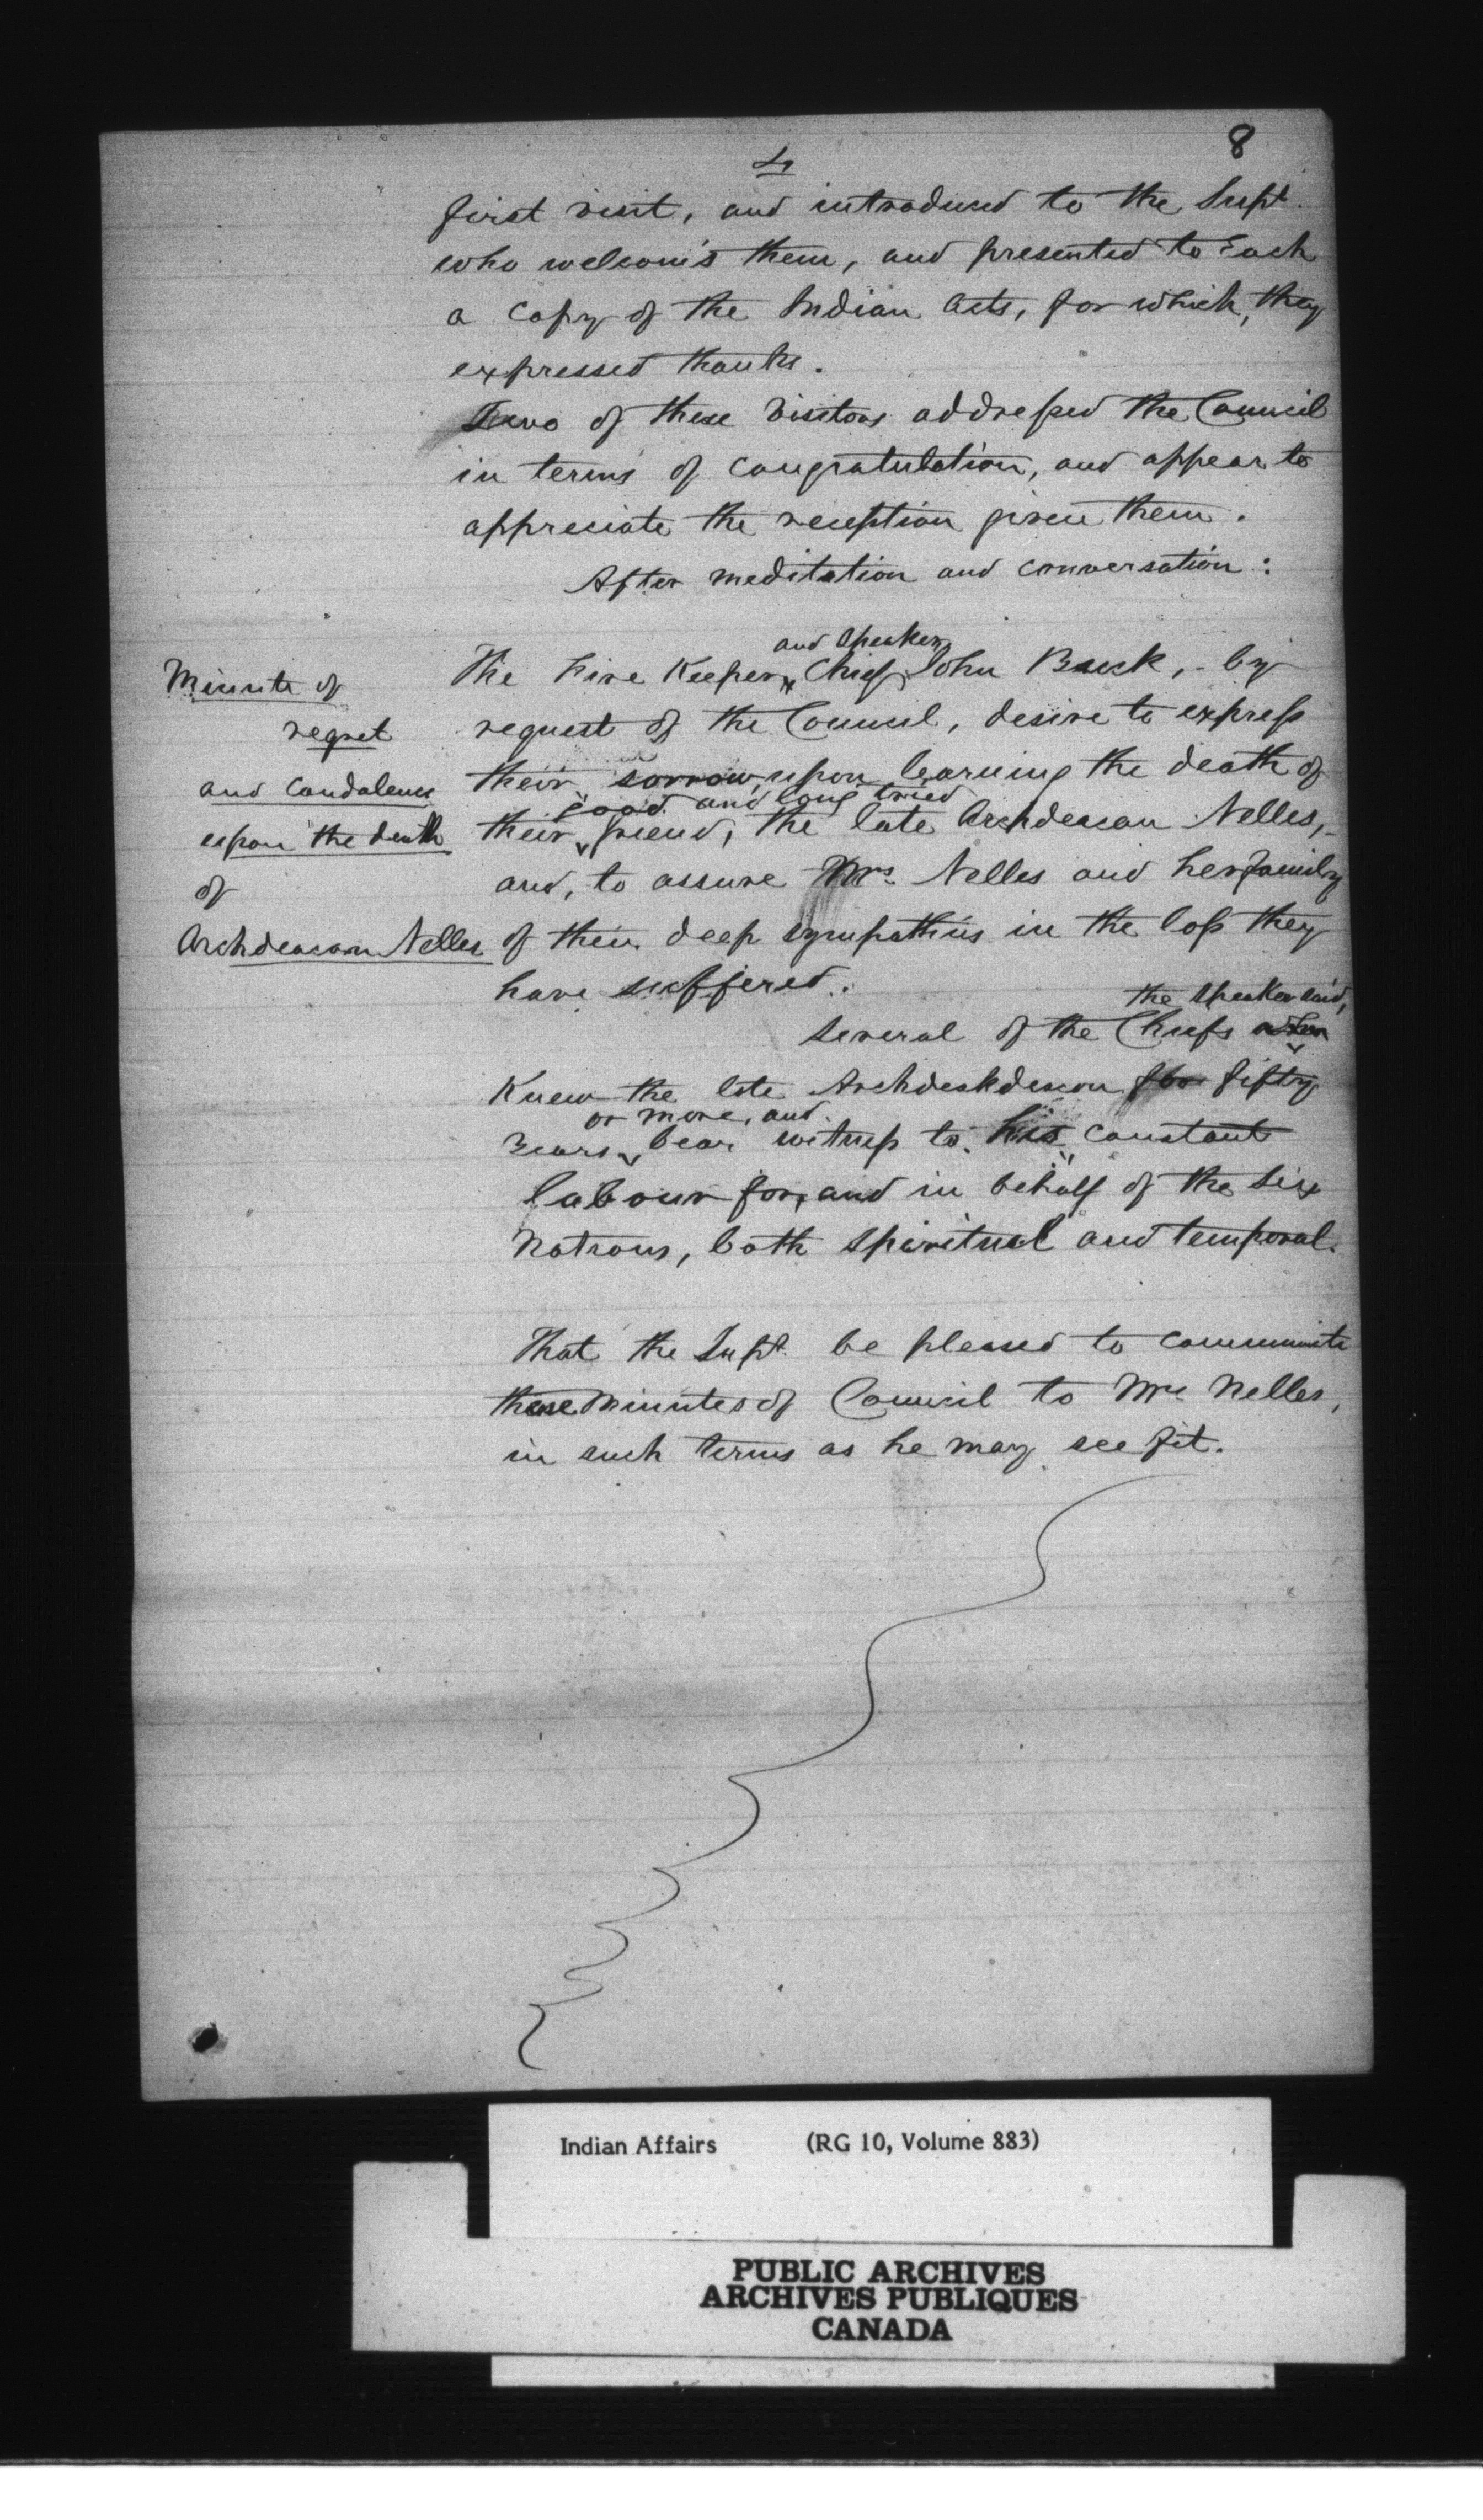 4
8
first visit, and introduced to the Supt.
who welcom's them, and presented to Each
a Copy of the Indian Acts, for which, they
expressed thanks.
Two of these Visitors addressed the Council
in terms of congratulation, and appear to
appreciate the reception given them.
After meditation and conversation:
Minute of
regret
and Condolence
upon the death
of
Archdeacon Nelles
and Speaker
The Fire Keeper, Chief John Buck, - by
request of the Council, desire to express
their sorrow, upon learning the death of
good and long tried
their friend, the late Archdeacon Nelles,
and, to assure Mrs. Nelles and her family
of their deep sympathies in the loss they
have suffered.
the Speaker said,
Several of the Chiefs
Knew the late Archdeskdeacon for fifty
or more, and
Years bear witness to his constant
labour for, and in behalf of the Six
Nations, both Spiritual and temporal.
That the Supt. be pleased to communicate
these Minutes of Council to Mrs Nelles,
in such terms as he may see fit.
Indian Affairs (RG 10, Volume 883)
PUBLIC ARCHIVES
ARCHIVES PUBLIQUES
CANADA